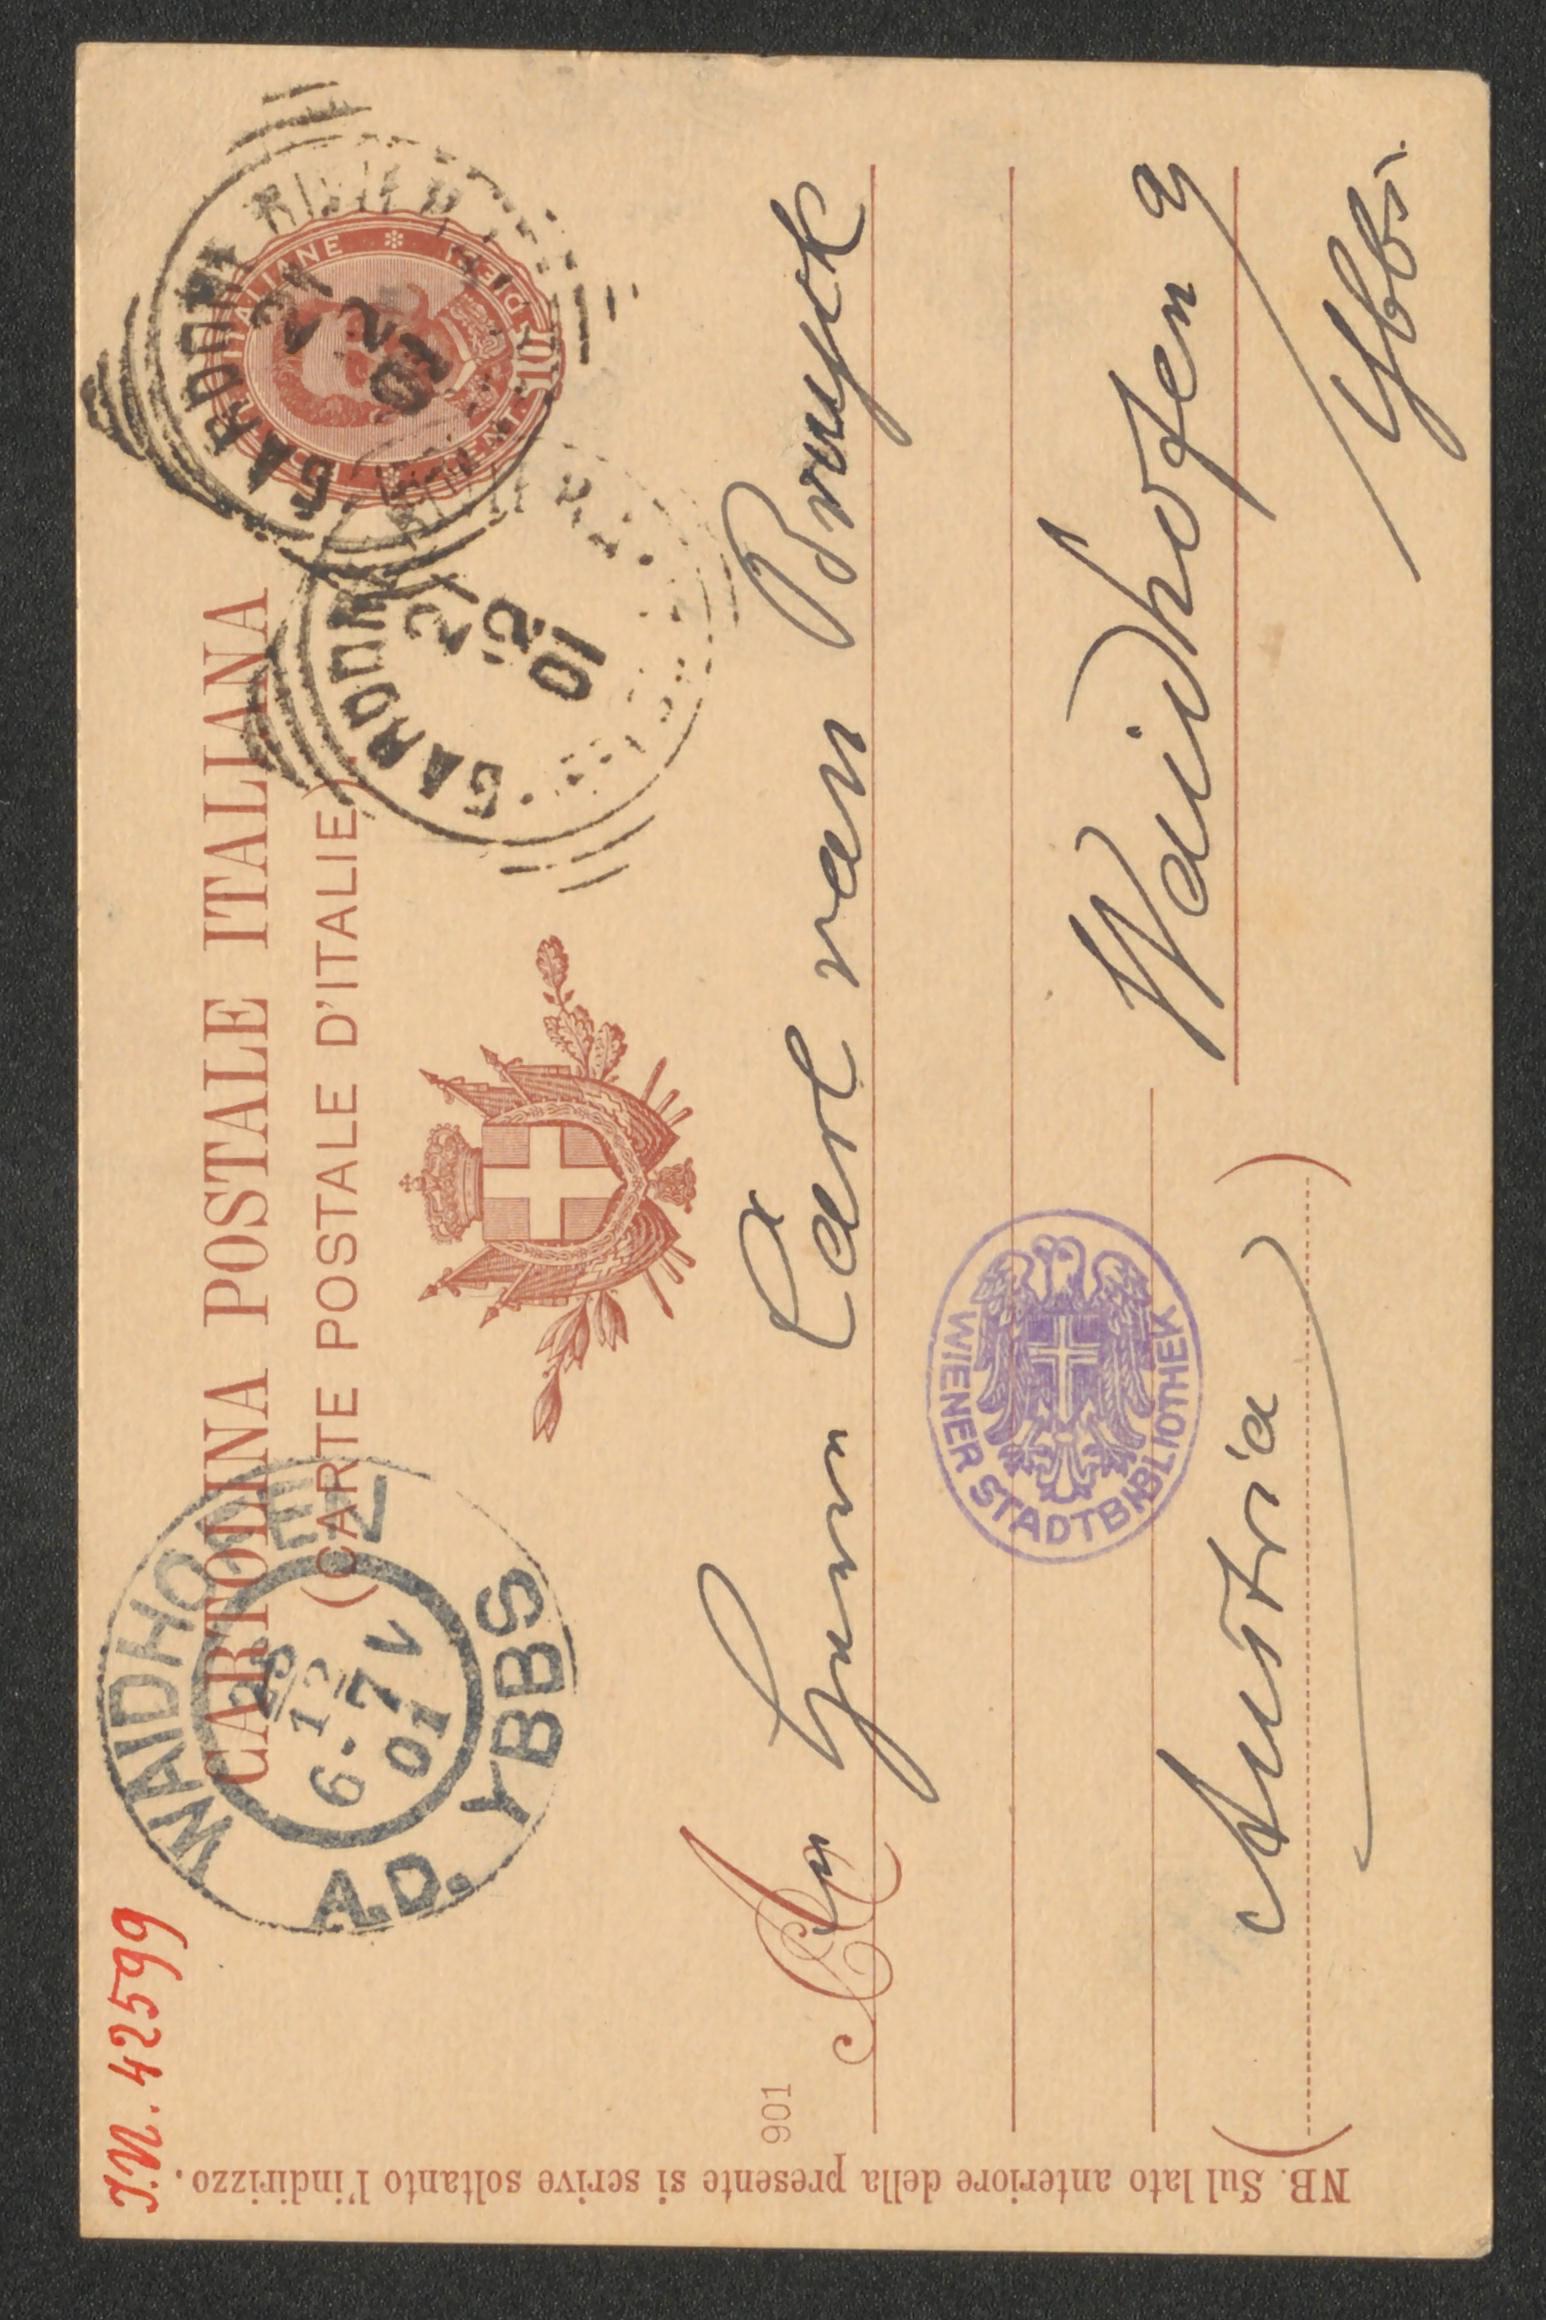 I.N. 42599
CARTOLINA POSTALE ITALIANA
(CARTE POSTALE D'ITALIE)
WAIDHOFEN
A.D. YBBS
6-7V
01
POSTE ITALIANE
CENT. 10
GARDONE
21
12
01
GARDONE
21
12
01
901
An Herrn Carl van Bruyck
Waidhofen a/
Ybbs.
Austria
WIENER STADTBIBLIOTHEK
NB. Sul lato anteriore della presente si scrive soltanto l'indirizzo.